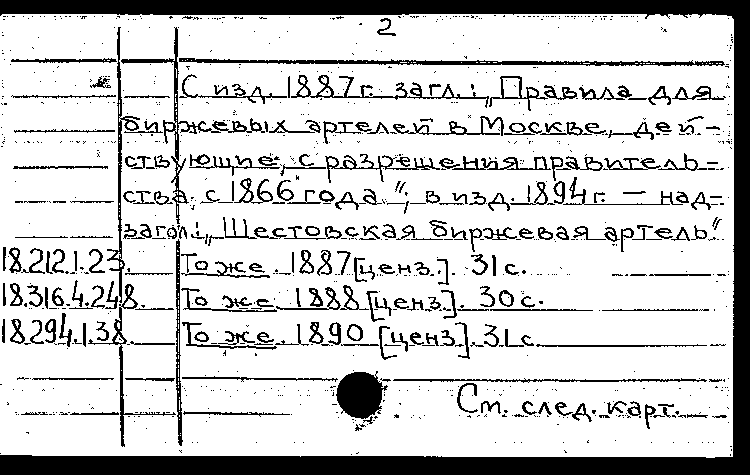 2
С изд. 1887 г. загл.: „Правила для
биржевых артелей в Москве, дей-
ствующие, с разрешения правитель-
ства, с 1866 года“; в изд. 1894 г. — над-
загол.: „Шестовская биржевая артель“
18.212.1.23. То же. 1887 [ценз.]. 31 с.
18.316.4.248. То же. 1888 [ценз.]. 30 с.
18.294.1.38. То же. 1890 [ценз.]. 31 с.
См. след. карт.